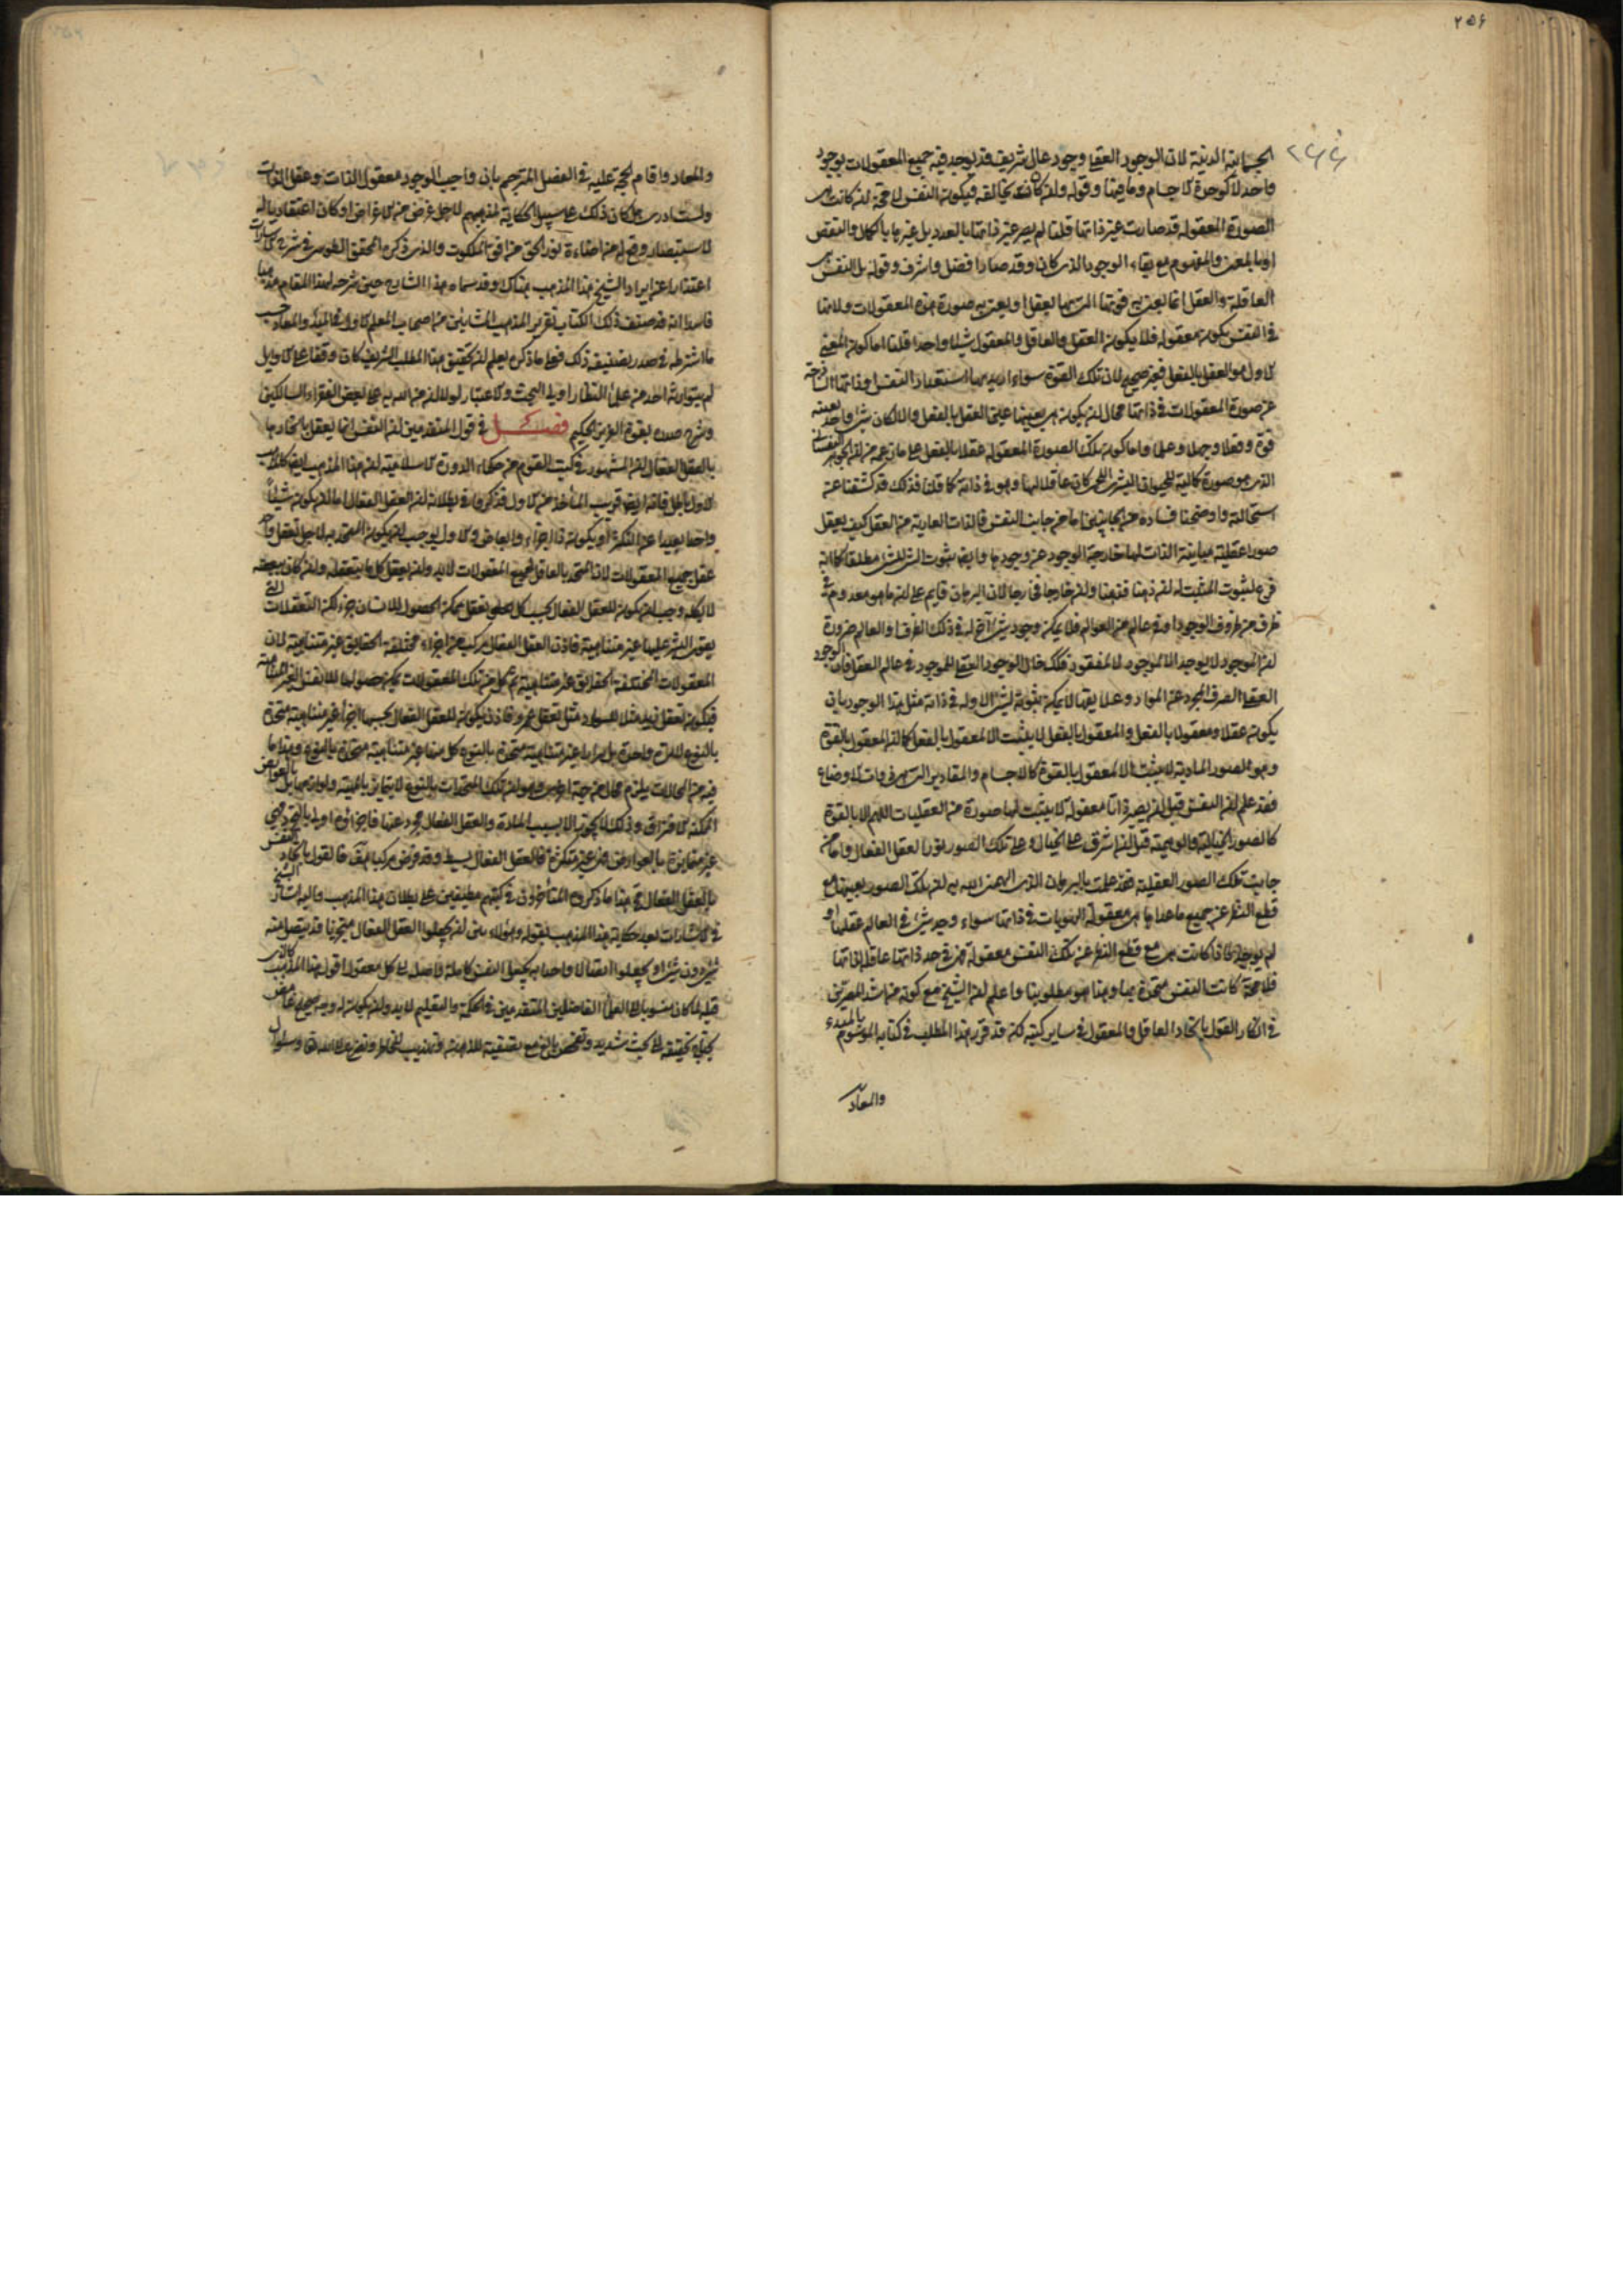 ٢٥۶
الجسمانية الدنية لان الوجود العقلي وجود عال شريف قد يوجد فيه جميع المعقولات بوجود
واحد لا كوجود الاجسام وما فيها وقوله ولان كانت تخالفه فيكون النفس لا محة ان كانت هى
الصورة المعقولة قد صارت غير ذاتها قلنا لم يصر غير ذاتها بالعدد بل غيرها بالكمال والنقص
او بالمعنى والمفهوم مع بقاء الوجود الذى كان وقد صار افضل واشرف وقوله بل النفس هى
العاقلة والعقل انما يعنى به قوتها التى بها يعقل او يعنى به صورة هذه المعقولات ولانها
فى النفس يكون معقولة فلا يكون العقل والعاقل والمعقول شيئا واحدا قلنا اما كون المعنى
الاول هو العقل بالفعل فغير صحيح لان تلك القوة سواء اريد بها استعداد النفس او ذاتها الساذجة
عن صورة المعقولات فى ذاتها محال ان يكون هى بعينها عين العقل بالفعل والا لكان شئ واحد بعينه
قوة وفعلا وجهلا وعلما واما كون تلك الصورة المعقولة عقلا بالفعل على ما زعمه من ان الجوهر النفسانى
الذى هو صورة كمالية للحيوان البشرى اللحمى كان عاقلا لها وهو فى ذاته كما قلنا فذلك قد كشفنا عن
استحالته واوضحنا فساده من الجانبين اما من جانب النفس فالذات العارية من العقل كيف يعقل
صورا عقلية مباينة الذات لها خارجة الوجود عن وجودها وايضا ثبوت الشئ للشئ مطلقا كما انه
فرع لثبوت المثبت له ان ذهنا فذهنا وان خارجا فخارجا لان البرهان قايم على ان ما هو معدوم فى
ظرف من ظروف الوجود او فى عالم من العوالم فلا يمكن وجود شئ آخر له فى ذلك الظرف او العالم ضرورة
ان الموجود لا يوجد الا لموجود لا لمفقود فكذلك حال الوجود العقلى للموجود فى عالم العقل فان الوجود
العقلى الصرف المجرد عن المواد وعلايقها لا يمكن ثبوته لشئ الا وله فى ذاته مثل هذا الوجود بان
يكون عقلا ومعقولا بالفعل والمعقول بالفعل لا يثبت الا لمعقول بالفعل كما ان المعقول بالقوة
وهو الصور المادية لا يثبت الا لمعقول بالقوة كالاجسام والمقادير التى هى ذوات الاوضاع
فقد علم ان النفس قبل ان يصير ذاتا معقولة لا يثبت لها صورة من العقليات اللهم الا بالقوة
كالصور الخيالية والوهمية قبل ان اشرق على الخيال وعلى تلك الصور نور العقل الفعال واما من
جانب تلك الصور العقلية فقد علمت بالبرهان الذى الهمنى الله به ان تلك الصور بعينها مع
قطع النظر عن جميع ما عداها هى معقولة الهويات فى ذاتها سواء وجد شئ فى العالم عقلها او
لم يوجد فاذا كانت هى مع قطع النظر عن تلك النفس معقولة فهى فى حد ذاتها عاقلة لذاتها
فلا محة كانت النفس متحدة بها وهذا هو مطلوبنا واعلم ان الشيخ مع كونه من اشد المصرين
فى انكار القول باتحاد العاقل والمعقول فى ساير كتبه لكنه قد قرر هذا المطلب فى كتابه الموسوم بالمبدء
والمعاد
والمعاد واقام الحجة عليه فى الفصل المترجم بان واجب الوجود معقول الذات وعقل الذات
ولست ادرى هل كان ذلك على سبيل الحكاية لمذهبهم لاجل غرض من الاغراض او كان اعتقاديا له
لاستبصار وقع له من اضاءة نور الحق من افق الملكوت والذى ذكره المحقق الطوسى فى شرح الاشارات
اعتذارا عن ايراد الشيخ هذا المذهب هناك وقد سماه هذا الشارح حين شرحه لهذا المقام مذهبا
فاسدا انه قد صنف ذلك الكتاب تقرير المذهب المشائين من اصحاب المعلم الاول فى المبدء والمعاد حسب
ما اشترطه فى صدر تصنيفه ذلك فعلى ما ذكره يعلم ان تحقيق هذا المطلب الشريف كان وقفا على الاوايل
لم يتوارثه احد من علماء النظار اولى البحث والاعتبار لولا ان من الله به على بعض الفقراء السالكين
وشرح صدره بقوة العزيز الحكيم فصل فى قول المتقدمين ان النفس انما يعقل باتحادها
بالعقل الفعال ان المشهور فى كتب القوم من حكماء الدورة الاسلامية ان هذا المذهب ايضا كالمذهب
الاول باطل فانه ايضا قريب المأخذ من الاول فذكروا فى بطلانه ان العقل الفعال اما ان يكون شيئا
واحدا بعيدا عن التكثر او يكون ذا اجزاء وابعاض والاول يوجب ان يكون المتحد به لاجل تعقل واحد
عقل جميع المعقولات لان المتحد بالعاقل لجميع المعقولات لا بد وان يعقل كل ما يتعقله وان كان ببعضه
لا بكله وجب ان يكون للعقل الفعال بحسب كل تعقل ممكن الحصول للانسان جزء لكن التعقلات التى
يقوى البشر عليها غير متناهية فاذن العقل الفعال مركب من اجزاء مختلفة الحقايق غير متناهية لان
المعقولات المختلفة الحقايق غير متناهية ثم كل من تلك المعقولات يمكن حصولها للانفس الغير المتناهية
فيكون تعقل زيد مثلا للسواد مثل تعقل عمرو فاذن يكون للعقل الفعال بحسبها اجزاء غير متناهية متحدة
بالنوع لا مرة واحدة بل مرارا غير متناهية متحدة بالنوع كل منها غير متناهية متحدة بالنوع وهذا ما
فيه من المحالات يلزم محال من جهة اخرى وهو ان تلك المتحدات بالنوع لا يتمايز بالمهية ولوازمها بل بالعوارض
الممكنة الافتراق وذلك لا يكون الا بسبب المادة والعقل الفعال مجرد عنها فاجزاؤه اولى بالتجرد فهى
غير متمايزة بالعوارض فهى غير متكثرة فالعقل الفعال بسيط وقد فرض مركبا هف فالقول باتحاد النفس
بالعقل الفعال مح هذا ما ذكره المتأخرون فى كتبهم مطبقين على بطلان هذا المذهب واليه اشار الشيخ
فى الاشارات بعد حكاية هذا المذهب بقوله وهؤلاء بين ان يجعلوا العقل الفعال متجزيا قد يتصل منه
شئ دون شئ او يجعلوا اتصالا واحدا به يجعل النفس كاملة واصلة الى كل معقول اقول هذا المذهب كالذى
قبله لما كان منسوبا الى العلماء الفاضلين المتقدمين فى الحكمة والتعليم لا بد وان يكون له وجه صحيح غامض
يحتاج تحقيقه الى بحث شديد وتفحص بالغ مع تصفية للذهن وتهذيب للخاطر وتضرع الى الله تعالى وسؤال